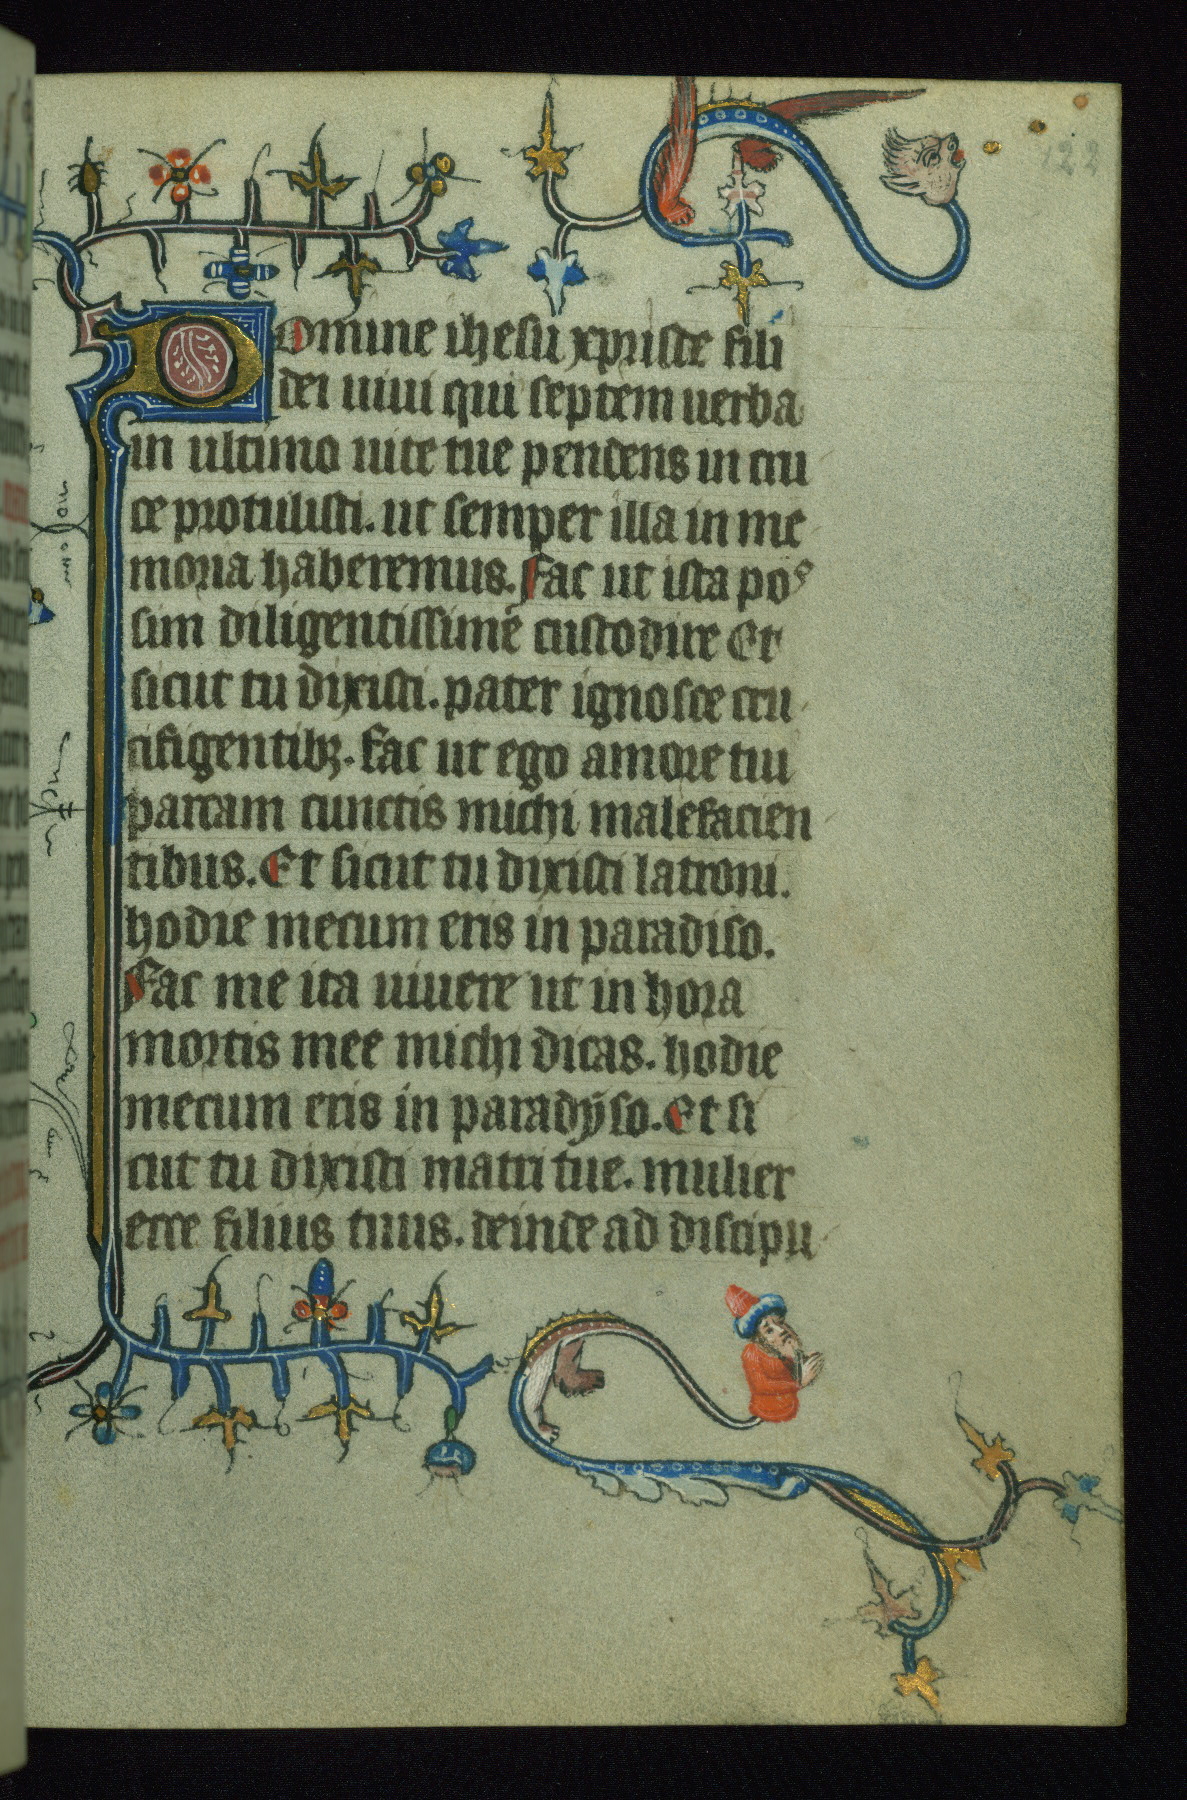 122
Domine ihesu xpriste fili
dei uiui qui septem uerba
in ultimo uite tue pendens in cru
ce protulisti. ut semper illa in me
moria haberemus. Fac ut ista pos
sim diligentissime custodire Et
sicut tu dixisti. pater ignosce cru
cifigentibꝫ. fac ut ego amore tui
parcam cunctis michi malefacien
tibus. Et sicut tu dixisti latroni.
hodie mecum eris in paradiso.
Fac me ita uiuere ut in hora
mortis mee michi dicas. hodie
mecum eris in paradyso. Et si
cut tu dixisti matri tue. mulier
ecce filius tuus. deinde ad discipu